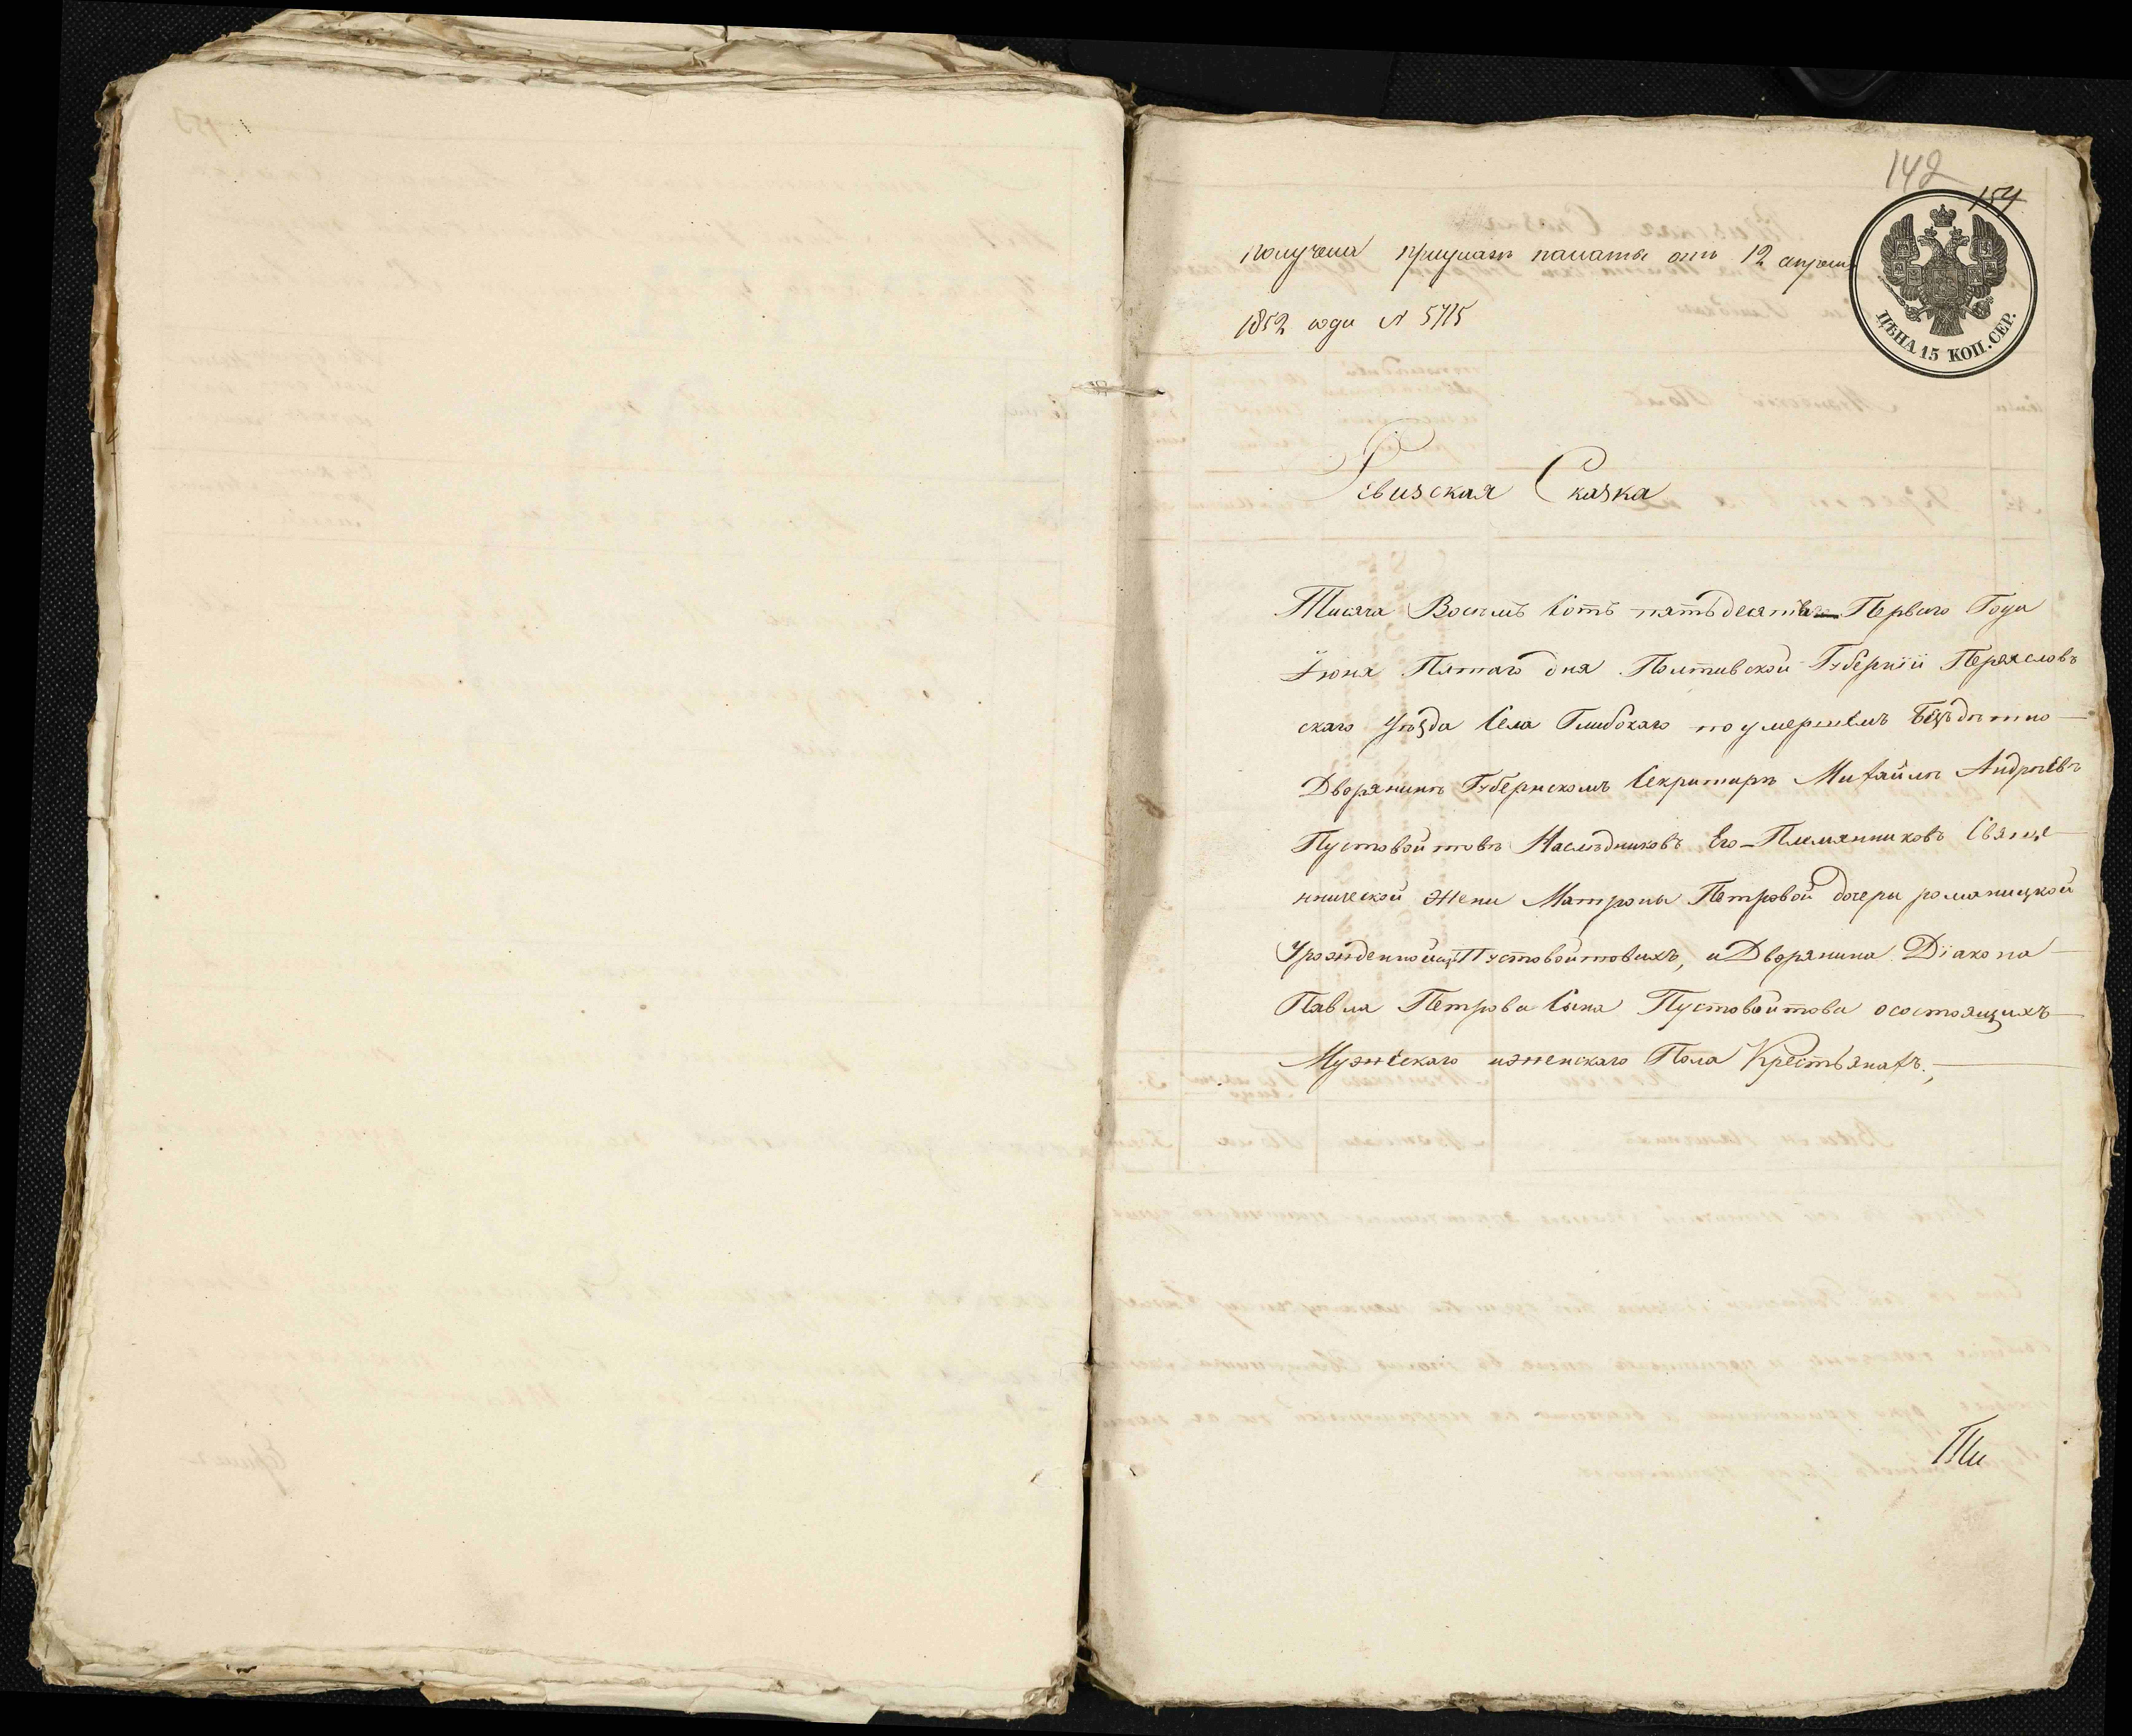 142
154
получена при указе палаты отъ 12 апреля
1852 года № 5715
ЦѢНА 15 КОП. СЕР.
Ревизская Сказка
Тисяча Восѣмъ Сотъ пятьдесятъ Перваго Года
Іюня Пятаго дня Полтавской Губерніи Переяслов
скаго Уѣзда Села Глибокаго по умершемъ Бездѣтно
Дворянинѣ Губернскомъ Секритарѣ Михайлѣ Андрѣевѣ
Пустовойтовѣ Наслѣдниковъ Его Племянниковъ Свяще
ннической Жени Матроны Петровой дочери романицкой
Урожденной изъ Пустовойтовихъ, и Дворянина Діакона
Павла Петрова Сына Пустовойтова осостоящихъ
Мужескаго иженскаго Пола Крестьянахъ.